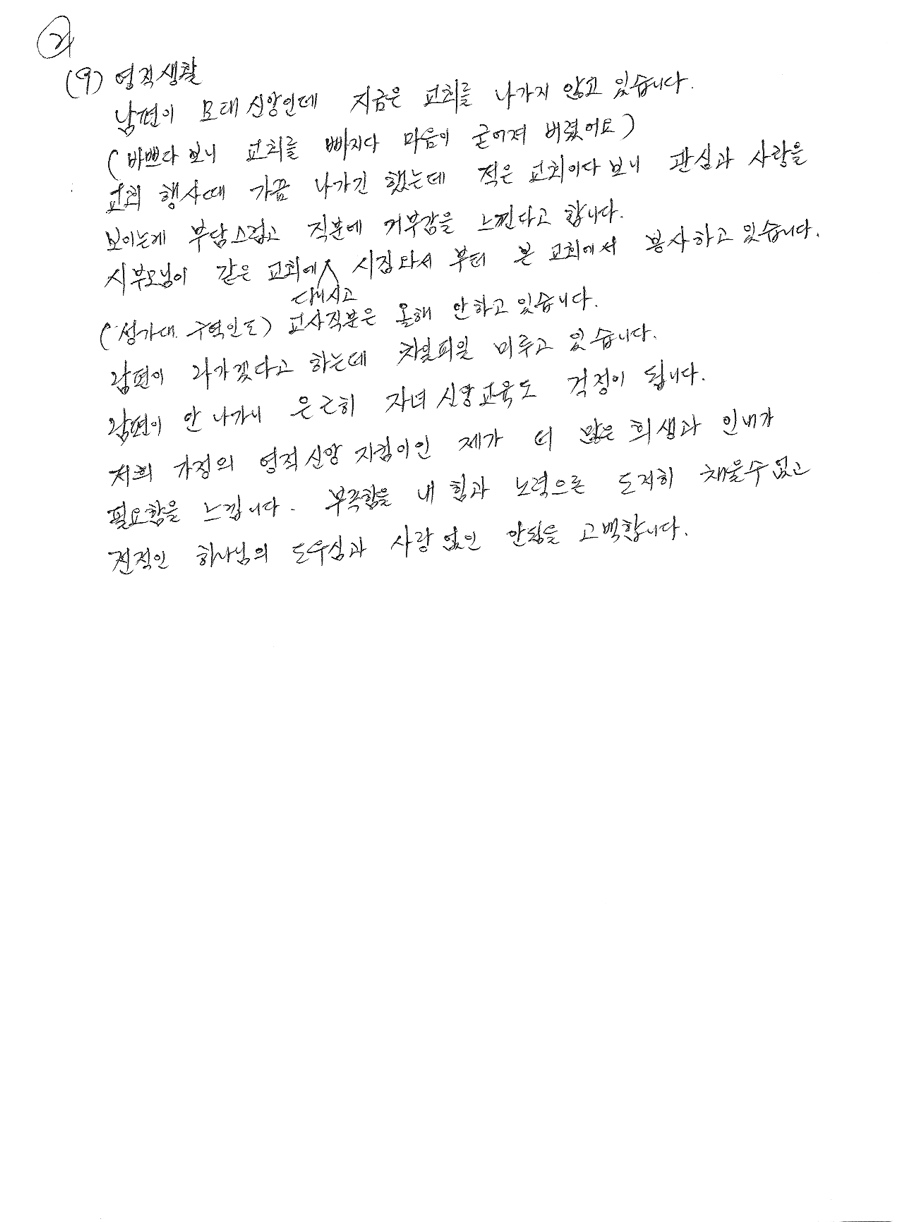 2
(9) 영적생활
남편이 모태신앙인데 지금은 교회를 나가지 않고 있습니다.
(바쁘다 보니 교회를 빠지다 마음이 굳어져 버렸어요)
교회 행사때 가끔 나가긴 했는데 적은 교회이다 보니 관심과 사랑을
보이는게 부담스럽고 직분에 거부감을 느낀다고 합니다.
시부모님이 같은 교회에 다니시고 시집와서 부터 본 교회에서 봉사하고 있습니다.
(성가대. 구역인도) 교사직분은 올해 안하고 있습니다.
남편이 나가겠다고 하는데 차일피일 미루고 있습니다.
남편이 안 나가니 은근히 자녀 신앙교육도 걱정이 됩니다.
저희 가정의 영적신앙 지킴이인 제가 더 많은 희생과 인내가
필요함을 느낍니다. 부족함을 내 힘과 노력으론 도저히 채울수 없고
전적인 하나님의 도우심과 사랑 없인 안됨을 고백합니다.